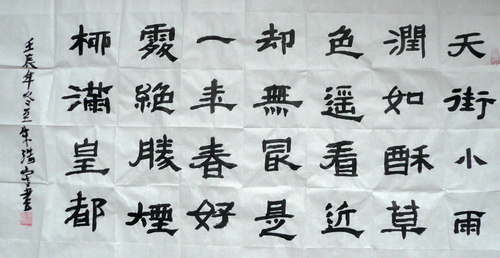 天街小雨
潤如酥草
色遥看近
却無最是
一年春好
處絶勝煙
柳滿皇都
壬辰年冬至朱書